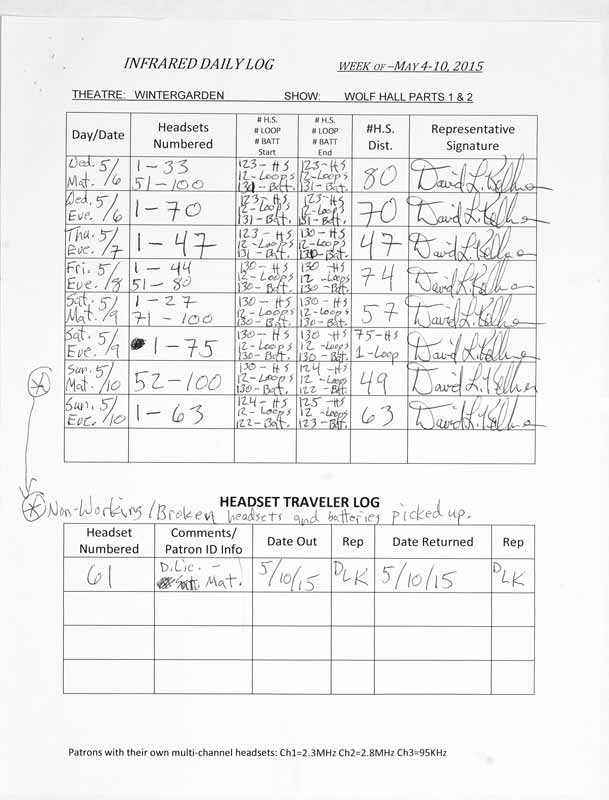 INFRARED DAILY LOG WEEK OF –MAY 4-10, 2015
THEATRE: WINTERGARDEN SHOW: WOLF HALL PARTS 1 & 2
Day/Date Headsets Numbered # H.S. # LOOP # BATT Start # H.S. # LOOP # BATT End #H.S. Dist. Representative Signature
Wed. 5/6 Mat. 1-33 51-100 123-HS 12-Loops 130-Batt. 123-HS 12-Loops 131-Batt. 80 David L. Kellner
Wed. 5/6 Eve. 1-70 123-HS 12-Loops 131-Batt. 123-HS 12-Loops 131-Batt. 70 David L. Kellner
Thu. 5/7 Eve. 1-47 123-HS 12-Loops 131-Batt. 130-HS 12-Loops 130-Batt. 47 David L. Kellner
Fri. 5/8 Eve. 1-44 51-80 130-HS 12-Loops 130-Batt. 130-HS 12-Loops 130-Batt. 74 David L. Kellner
Sat. 5/9 Mat. 1-27 71-100 130-HS 12-Loops 130-Batt. 130-HS 12-Loops 130-Batt. 57 David L. Kellner
Sat. 5/9 Eve. 1-75 130-HS 12-Loops 130-Batt. 130-HS 12-Loops 130-Batt. 75-HS 1-Loop David L. Kellner
Sun. 5/10 Mat. 52-100 130-HS 12-Loops 130-Batt. 124-HS 12-Loops 122-Batt. 49 David L. Kellner
Sun. 5/10 Eve. 1-63 124-HS 12-Loops 122-Batt. 125-HS 12-Loops 123-Batt. 63 David L. Kellner
HEADSET TRAVELER LOG
Non-Working/Broken headsets and batteries picked up.
Headset Numbered Comments/ Patron ID Info Date Out Rep Date Returned Rep
61 D.Lic. - Mat. 5/10/15 DLK 5/10/15 DLK
Patrons with their own multi-channel headsets: Ch1=2.3MHz Ch2=2.8MHz Ch3=95KHz